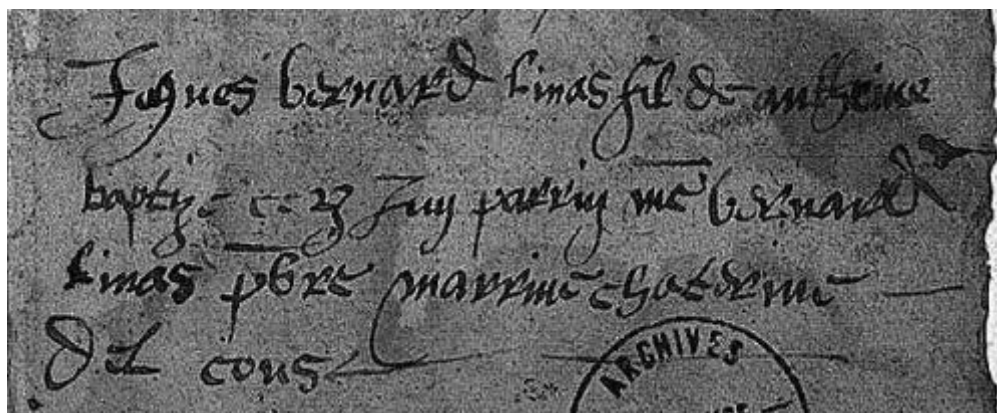 Jaques bernard linas filz de anthoine
baptize ce parrin me bernard
linas pbre marrine chaterine
del cous
ARCHIVES